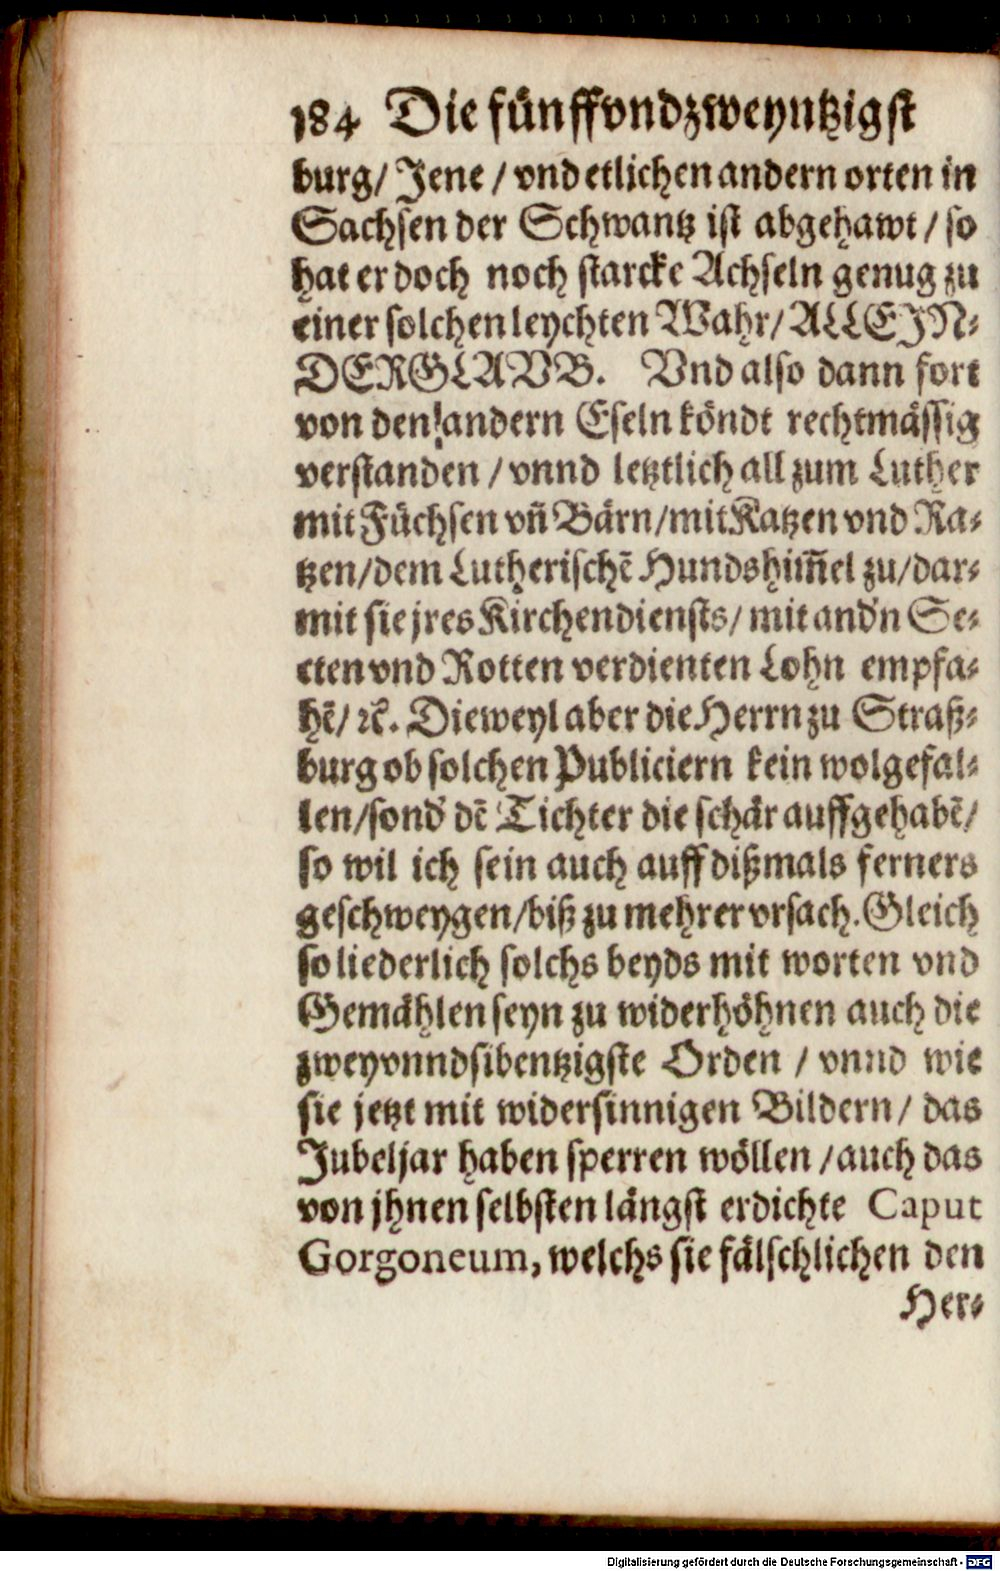 184 Die fünffvndzweyntzigst
burg/ Jene / vnd etlichen andern orten in
Sachsen der Schwantz ist abgehawt / so
hat er doch noch starcke Achseln genug zu
einer solchen leychten Wahr/ ALLEIN-
DERGLAVB. Vnd also dann fort
von den andern Eseln köndt rechtmässig
verstanden / vnnd letztlich all zum Luther
mit Füchsen vñ Bärn/mit Katzen vnd Ra-
tzen/dem Lutherischē Hundshim̃el zu/dar-
mit sie jres Kirchendiensts/ mit and'n Se-
cten vnd Rotten verdienten Lohn empfa-
hē/ ꝛc̃. Dieweyl aber die Herrn zu Straß-
burg ob solchen Publiciern kein wolgefal-
len/sond' dē Tichter die schär auffgehabē/
so wil ich sein auch auff dißmals ferners
geschweygen/biß zu mehrer vrsach. Gleich
so liederlich solchs beyds mit worten vnd
Gemählen seyn zu widerhöhnen auch die
zweyvnndsibentzigste Orden / vnnd wie
sie jetzt mit widersinnigen Bildern / das
Jubeljar haben sperren wöllen /auch das
von jhnen selbsten längst erdichte Caput
Gorgoneum, welchs sie fälschlichen den
Her-
Digitalisierung gefördert durch die Deutsche Forschungsgemeinschaft - DFG